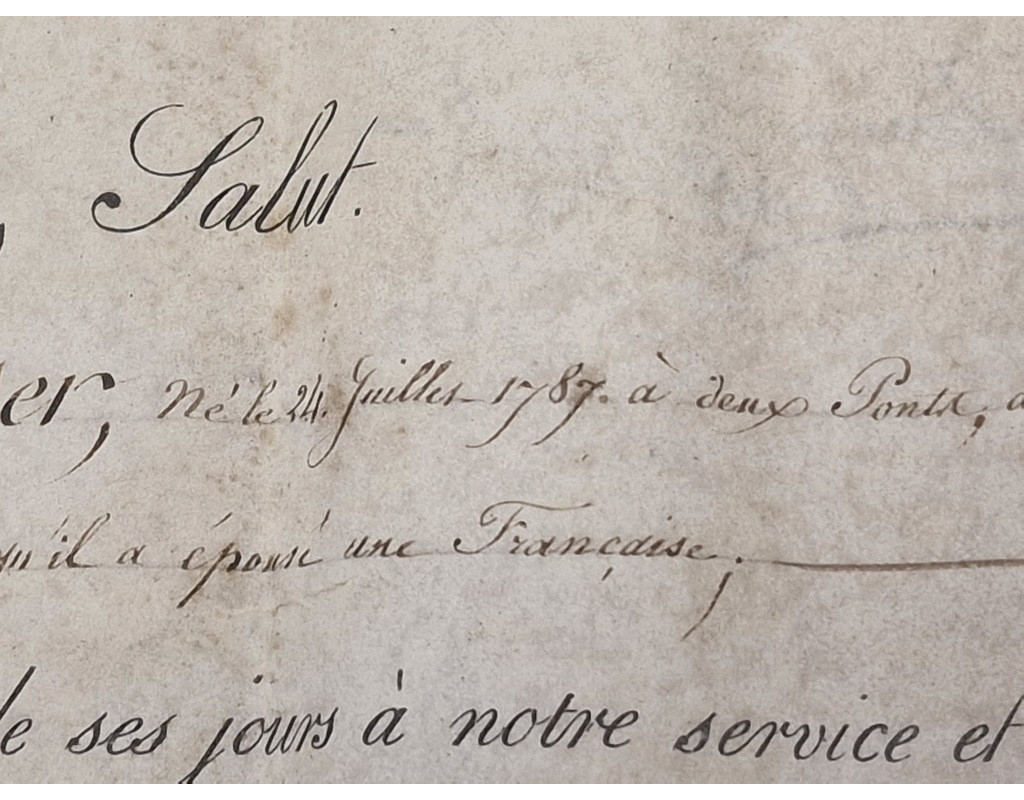 , Salut.
er, né le 24. Juillet 1787. à deux Ponts,
qu'il a épousé une Française;
de ses jours à notre service et